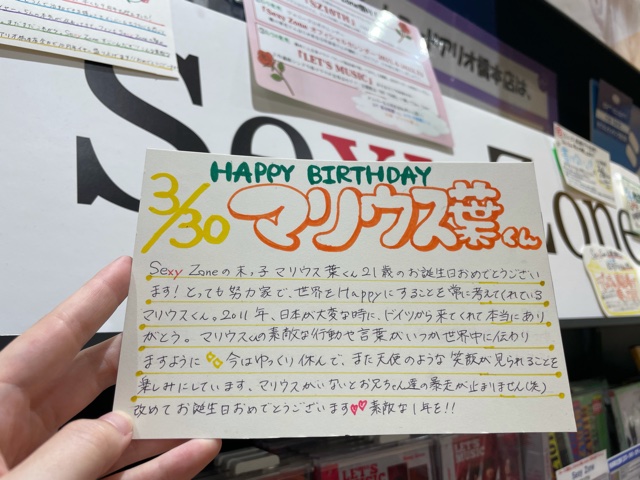 「LET'S MUSIC」
ドアリオ橋本店は、
Sexy Zone
HAPPY BIRTHDAY
3/30
マリウス葉くん
Sexy Zoneの末っ子マリウス葉くん21歳のお誕生日おめでとうござい
ます！とっても努力家で、世界をHappyにすることを常に考えてくれている
マリウスくん。2011年、日本が大変な時に、ドイツから来てくれて本当にあり
がとう。マリウスくんの素敵な行動や言葉がいつか世界中に伝わり
ますように 今はゆっくり休んで、また天使のような笑顔が見られることを
楽しみにしています。マリウスがいないとお兄ちゃん達の暴走が止まりません(笑)
改めてお誕生日おめでとうございます💕素敵な1年を!!
LET'S MUSIC
Sexy Zone